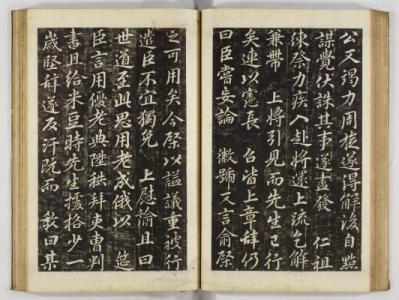 公又竭力周旋遂得解後自點
謀覺伏誅其事遂盡發 仁祖
練祭力疾入赴將還上疏乞解
兼帶 上將引見而先生已行
矣連以憲長 召皆上章辭仍
曰臣嘗妄論 徽號又言俞棨
之可用矣今棨以謚議重被行
遣臣不宜獨免 上慰諭且曰
世道至此思用老成俄以 筵
臣言用優老典陞秩拜吏曹判
書且給米豆時先生援格少一
歲堅辭遂反汗既而 教曰某